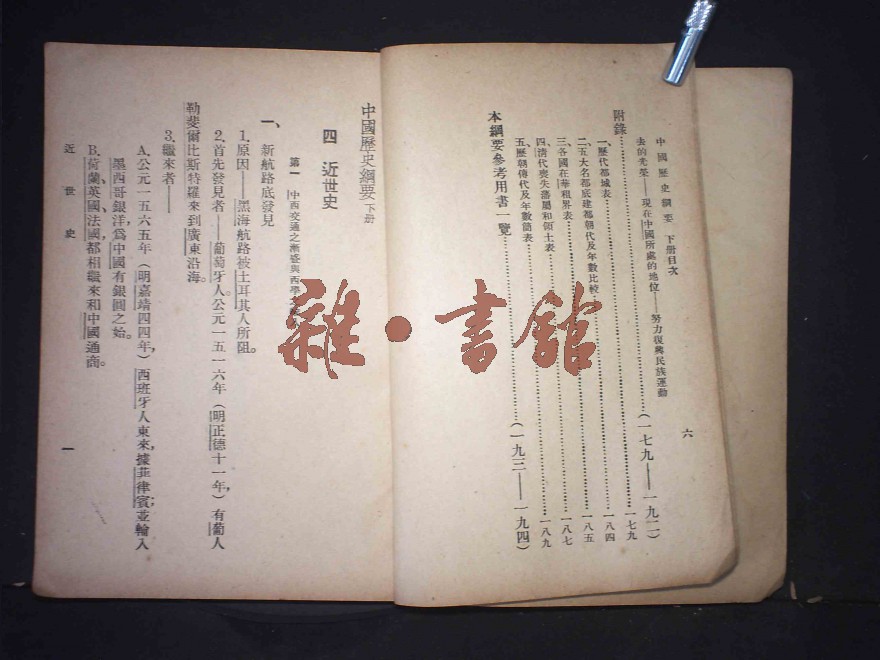 中國歷史綱要 下册目次
去的光榮——現在中國所處的地位——努力復興民族運動
附錄……(一七九——一九二)
一、歷代都城表……一七九
二、五大名都底建都朝代及年數比較……一八四
三、各國在華租界表……一八五
四、清代喪失藩屬和領土表……一八七
五、歷朝傳代及年數簡表……一八九
本綱要參考用書一覽……(一九三——一九四)
六
中國歷史綱要 下册
四 近世史
第一 中西交通之漸盛與西學之
一、新航路底發見
1.原因——黑海航路被土耳其人所阻。
2.首先發見者——葡萄牙人。公元一五一六年(明正德十一年,)有葡人
勒斐爾比斯特羅來到廣東沿海。
3.繼來者——
A.公元一五六五年(明嘉靖四四年,)西班牙人東來,據菲律賓;並輸入
墨西哥銀洋,爲中國有銀圓之始。
B.荷蘭、英國、法國,都相繼來和中國通商。
近世史
一
雜·書館